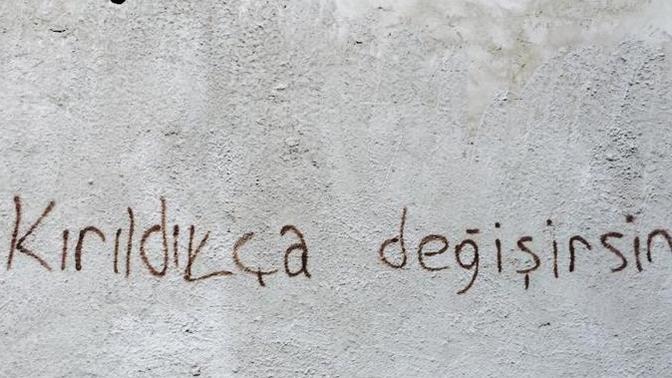 Kırıldıkça değişirsin